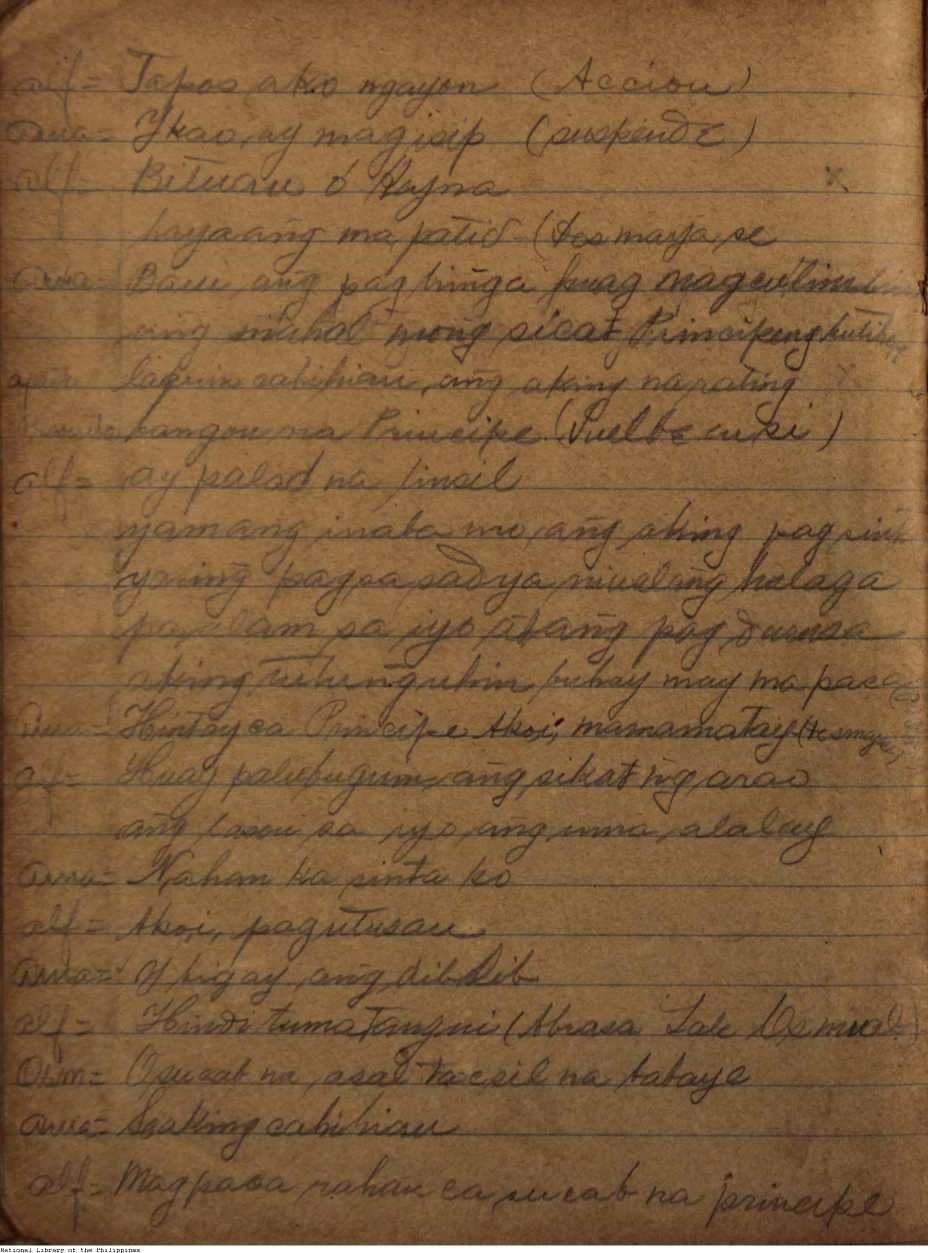 alf = Tapos ako ngayon (Accion)
Ana = Ykao, ay magisip (suspende)
alf = Bituan ó Reyna x
hayaang ma patid (desmaya se
Ana = Bau ang pag hinga huag
ang mahal mong sicat Principeng
laguin cabihian, ang aking narating
bangon na Principe (Vuelbe en si)
alf = ay palad na linsil
yamang inaba mo, ang aking pag sint
yaring pagsa sadya niualang halaga
pa alam sa iyo abang pag durusa
aking buhay may ma paca
Ana = Hintay ca Principe Akoi, mamamatay (desmaya)
alf = Huag palubugum, ang sikat ng arao
ang lason sa iyo ang uma alalay
Ana = Nahan ka sinta ko
alf = Akoi, pagutusan
Ana = Y bigay, ang dib dib
alf = Hindi tuma tangui (Abrasa Sale Osmual)
Osm = O sucab na, asal tacsil na babaye
Ana = Sa aking cabihian
alf = Magpaca rahan ca sucab na principe
National Library of the Philippines